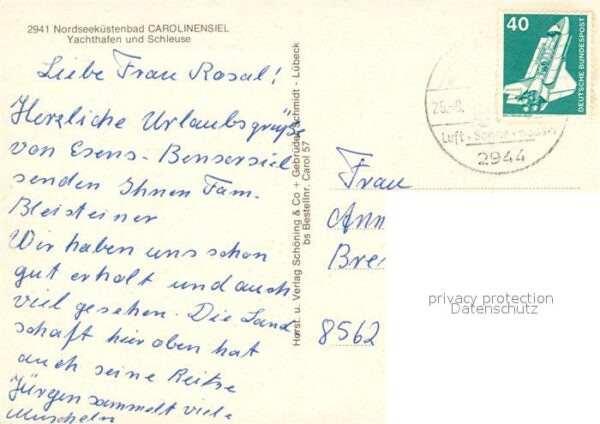 2941 Nordseeküstenbad CAROLINENSIEL
Yachthafen und Schleuse
Liebe Frau Rosal!
Herzliche Urlaubsgrüße
von Esens-Bensersiel
senden Ihnen Fam.
Bleisteiner
Wir haben uns schon
gut erholt und auch
viel gesehen. Die Land
schaft hier oben hat
auch seine Reitze
Jürgen sammelt viele
Muscheln
Herst. u. Verlag Schöning & Co + Gebrüder Schmidt - Lübeck
bs Bestellnr. Carol 57
40
DEUTSCHE BUNDESPOST
25.-8.
Luft · Sonne ·
2944
Frau
Ann
Bre
8562
privacy protection
Datenschutz